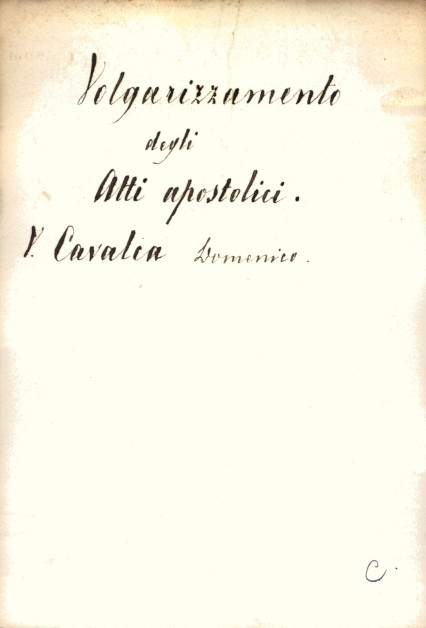 Volgarizzamento
degli
Atti apostolici.
V. Cavalca Domenico.
C.